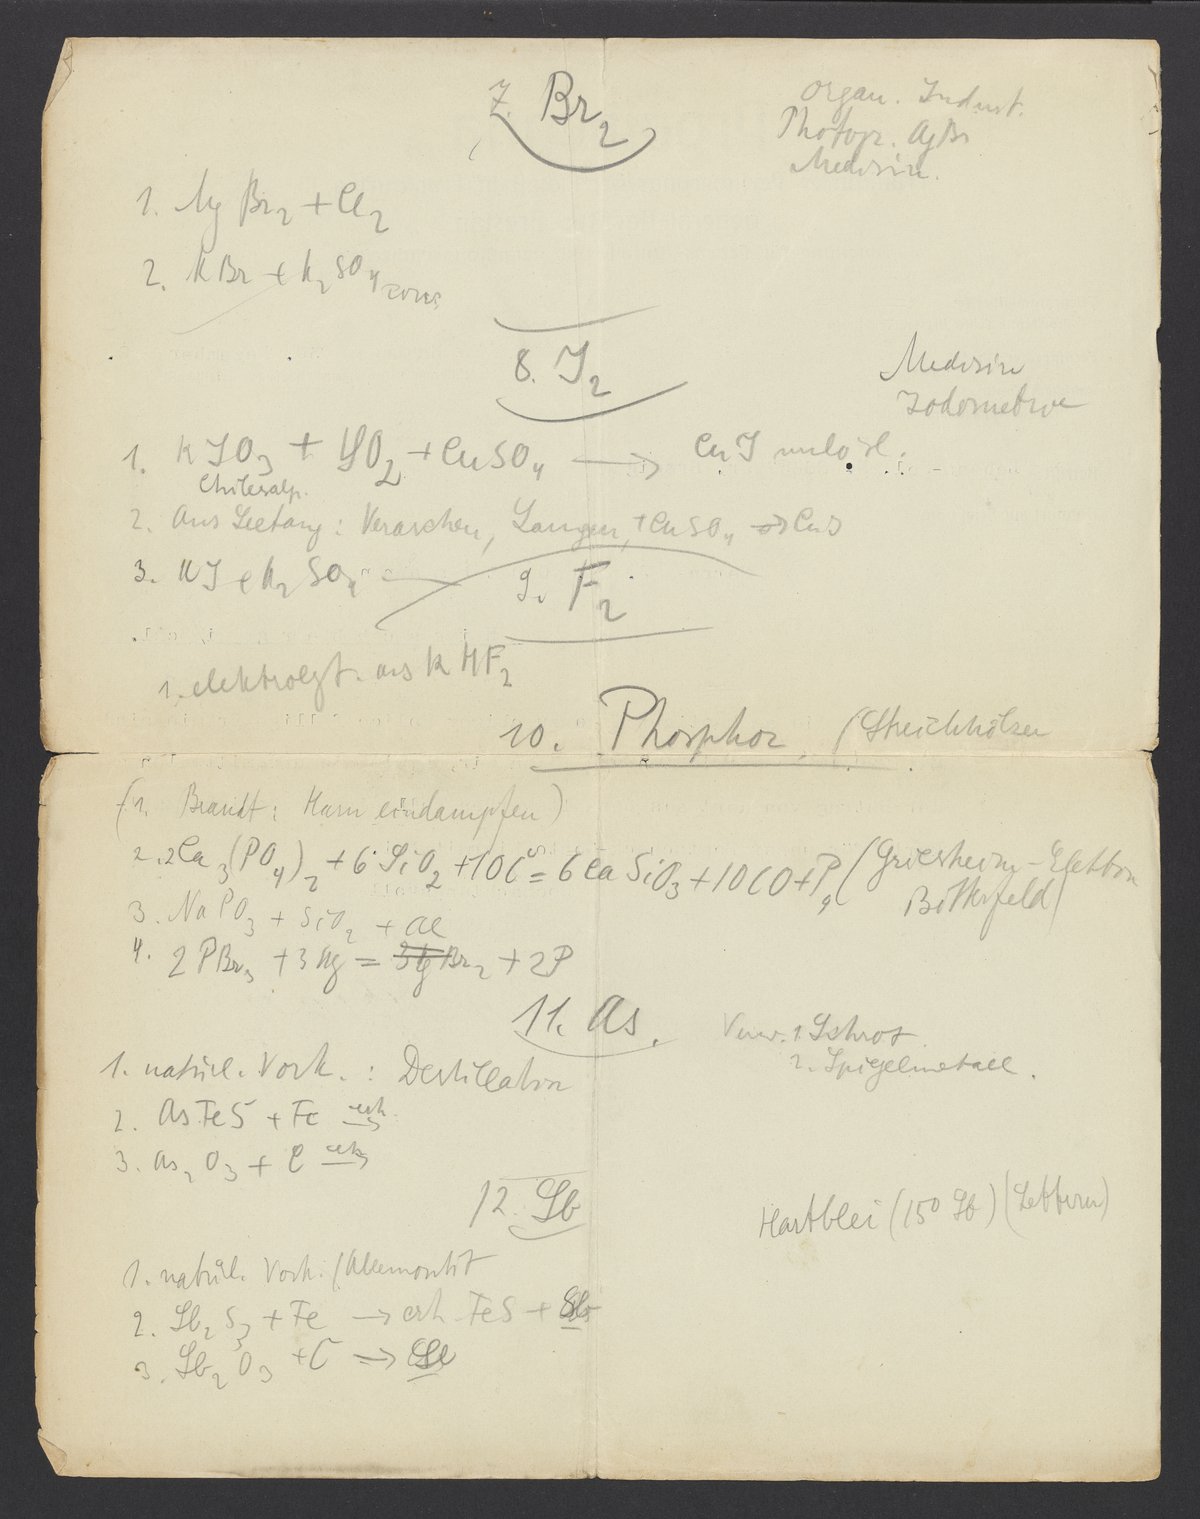 7. Br₂
Organ. Indust.
Photogr. AgBr
Medizin.
1. Mg Br₂ + Cl₂
2. KBr + K₂SO₄ conc
8. J₂
Medizin
Jodometrie
1. KJO₃ + SO₂ + CuSO₄ → CuJ unlösl.
Chilesalp.
2. Aus Seetang: Veraschen, Laugen, + CuSO₄ → CuJ
3. KJ + K₂SO₄
9. F₂
1. elektrolyt. aus KHF₂
10. Phosphor (Streichhölzer
(1. Brandt: Harn eindampfen)
2. 2Ca₃(PO₄)₂ + 6 SiO₂ + 10C = 6CaSiO₃ + 10CO + P₄ (Griesheim-Elektron
Bitterfeld)
3. NaPO₃ + SiO₂ + Al
4. 2PBr₃ + 3Mg = 3MgBr₂ + 2P
11. As.
Verw. 1. Schrot
2. Spiegelmetall.
1. natürl. Vork.: Destillation
2. AsFeS + Fe erh. →
3. As₂O₃ + C erh →
12. Sb
Hartblei (15% Sb) (Lettern)
1. natürl. Vork. (Allemontit
2. Sb₂S₃ + Fe → erh FeS + Sb
3. Sb₂O₃ + C → Sb